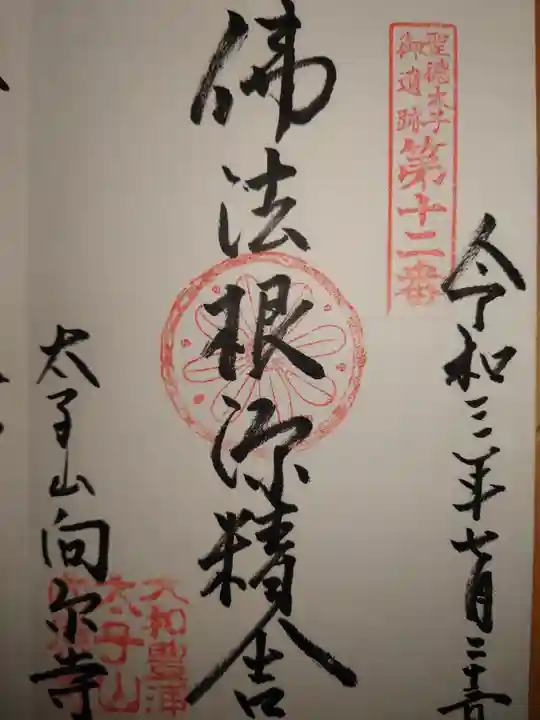 聖徳太子
御遺跡
第十二番
令和三年七月二十
佛法根源精舍
太子山向原寺
大和豊浦
太子山